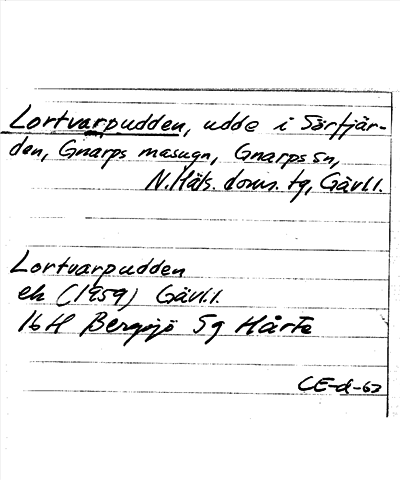 Lortvarpudden, udde i Sörfjär-
den, Gnarps masugn, Gnarps sn,
N. Häls. doms. tg, Gävl.l.
Lortvarpudden
ek (1959) Gävl.l.
16H Bergsjö 5g Hårte
CE-d-62